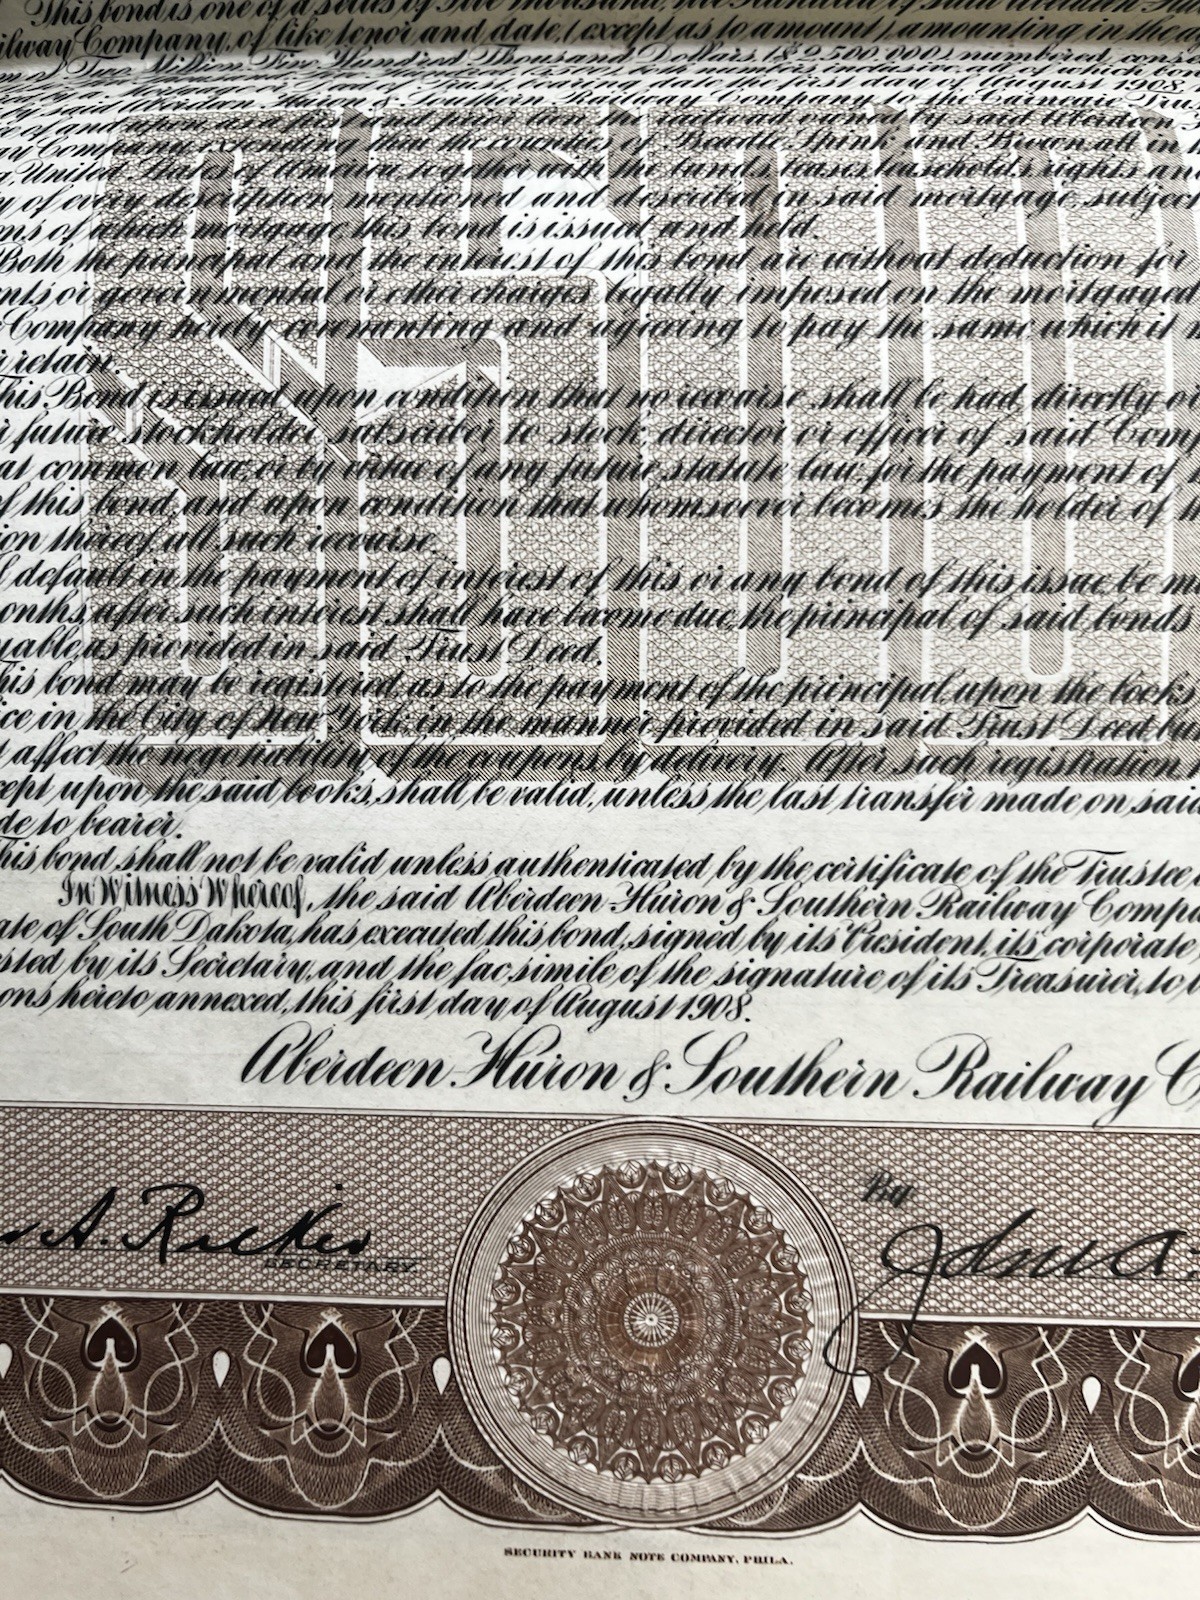 This bond is one of a series of Five Thousand, Five Hundred of said Aberdeen
ilway Company, of like tenor and date, (except as to amount) amounting in the
m of Two Million Five Hundred Thousand Dollars ($2,500,000) numbered
bearing date the first day of August 1908,
by said Aberdeen Huron & Southern Railway Company to the Carnegie Trus
e of and upon, as a first and prior lien the railroad owned by said Aberdeen
ay Company extending thro the counties of Beadle Spink and Brown all in
United States of America together with the lands leases leaseholds rights and
y of every description mentioned and described in said mortgage, subject
ms of which mortgage this bond is issued and held.
Both the principal and the interest of this bond are without deduction for
nts or governmental or other charges legally imposed on the mortgaged
Company hereby covenanting and agreeing to pay the same which it
r retain.
his Bond is issued upon condition that no recourse shall be had, directly or
r future stockholder, subscriber to stock, director or officer of said Comp
at common law, or by virtue of any future statute law, for the payment of
of this bond, and upon condition that whomsoever becomes the holder of
ion thereof all such recourse.
default in the payment of interest of this or any bond of this issue be m
onths, after such interest shall have become due, the principal of said bonds
yable, as provided in said Trust Deed.
his bond may be registered, as to the payment of the principal, upon the books
ice in the City of New York, in the manner provided in said Trust Deed but
t affect the negotiability of the coupons by delivery. After such registration
cept upon the said books, shall be valid, unless the last transfer made on said
de to bearer.
his bond shall not be valid unless authenticated by the certificate of the Trustee
In Witness Whereof, the said Aberdeen Huron & Southern Railway Comp
ate of South Dakota, has executed this bond, signed by its President, its corporate
sted by its Secretary, and the fac simile of the signature of its Treasurer, to
ons hereto annexed, this first day of August 1908.
Aberdeen Huron & Southern Railway C
By
A. Ricker
SECRETARY
SECURITY BANK NOTE COMPANY, PHILA.